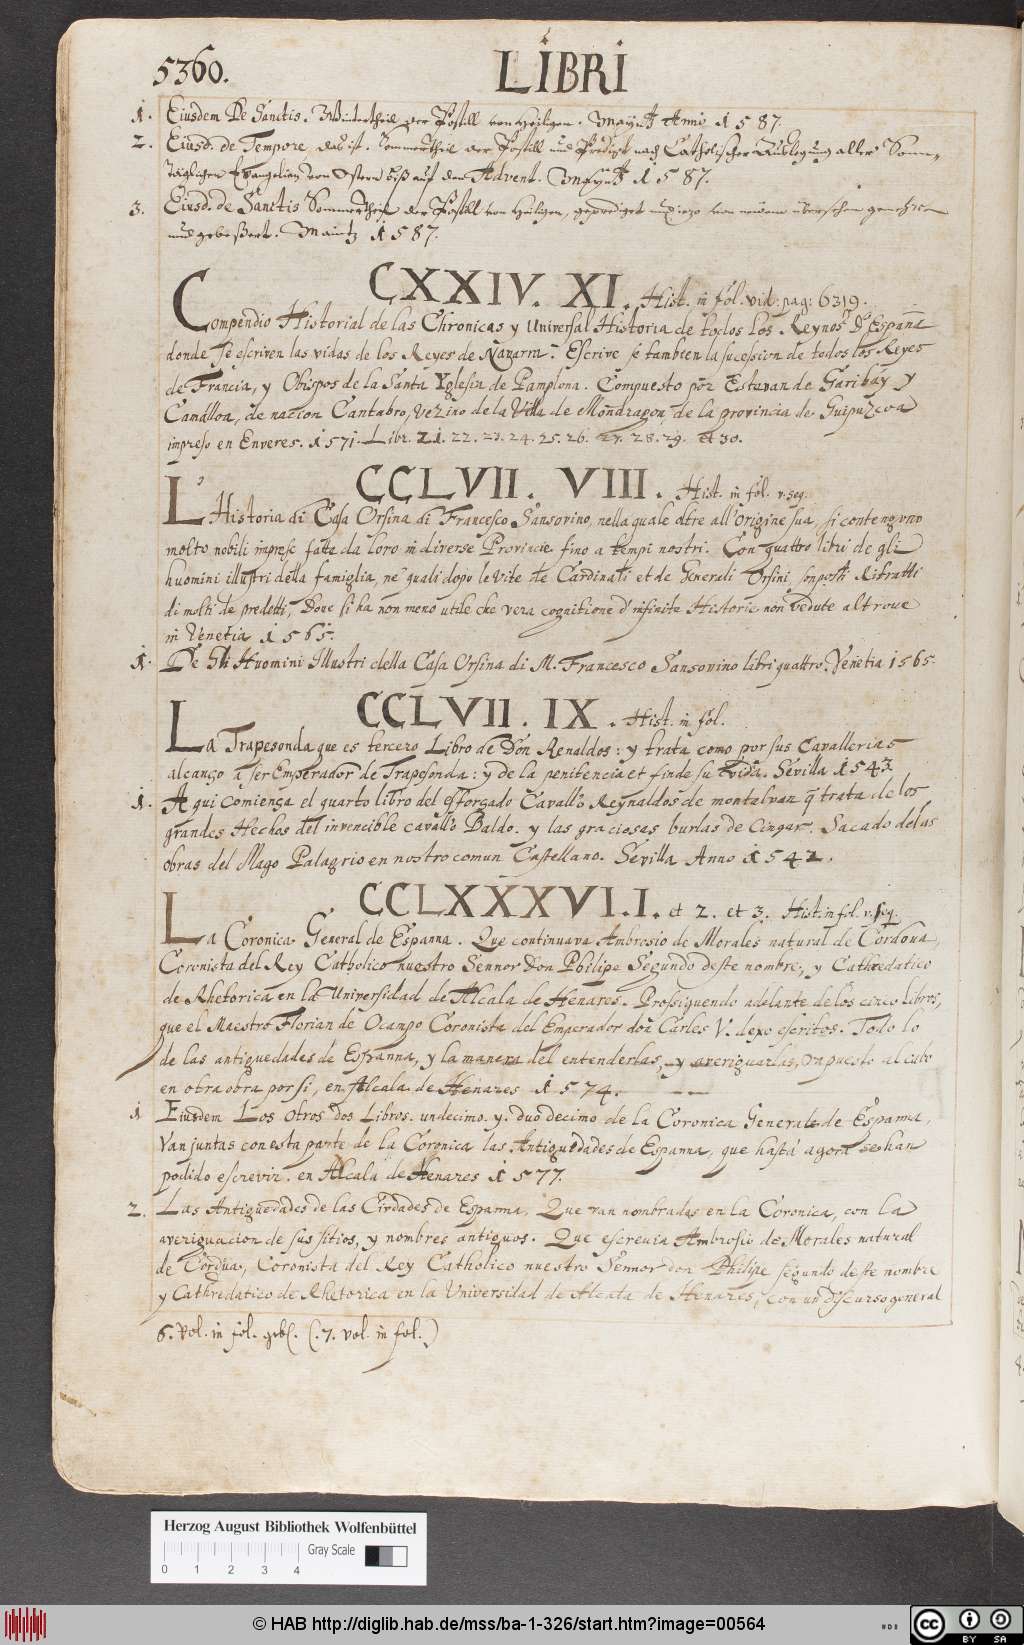 5360.
LIBRI
1. Eiusdem De Sanctis. Wintertheil der Postill von Heiligen. Mayntz Anno 1587.
2. Eiusd. de Tempore das ist. Sommertheil der Postill und Predigt nach Catholischer Außlegung aller Sonn-
täglichen Evangelien von Ostern biß auf den Advent. Mayntz 1587.
3. Eiusd. de Sanctis Sommertheil der Postill von Heiligen, geprediget von newem übersehen
und gebeßert. Maintz 1587.
CXXIV. XI. Hist. in fól. vid. pag: 6319.
Compendio Historial de las Chronicas y Universal Historia de todos los Reynos d'España
donde se escriven las vidas de los Reyes de Navarra. Escrive se tambien la sucession de todos los Reyes
de Francia, y Obispos de la Santa Yglesia de Pamplona. Compuesto por Estevan de Garibáy y
Camálloa, de nacion Cantabro, vezino de la Villa de Mondragon, de la provincia de Guipuzcoa
impreso en Enveres. 1571. Libr. 21. 22. 23. 24. 25. 26. 27. 28. 29. et 30.
CCLVII. VIII. Hist. in fól. v. seq.
L'Historia di Casa Orsina di Francesco Sansovino, nella quale oltre all'origine sua, si contengono
molto nobili imprese fatte da loro in diverse Provincie fino a tempi nostri. Con quattro libri de gli
huomini illustri della famiglia, ne' quali dopo le vite de Cardinali et de Generali Orsini, son posti Ritratti
di molti de predetti, Dove si ha non meno utile che vera cognitione d'infinite Historie non vedute altrove
in Venetia 1565.
1. De Gli Huomini Illustri della Casa Orsina di M. Francesco Sansovino libri quattro. Venetia 1565.
CCLVII. IX. Hist. in fól.
La Trapesonda que es tercero Libro de Don Renaldos: y trata como por sus Cavallerias
alcanço a ser Emperador de Trapesonda: y de la penitencia et fin de su vida. Sevilla 1543.
1. Aqui comiença el quarto libro del esforçado Cavallo Reynaldos de montalvan q̃ trata de los
grandes Hechos del invencible cavallo Baldo. y las graciosas burlas de Cingar. Sacado de las
obras del Mago Palagrio en nostro comun Castellano. Sevilla Anno 1542.
CCLXXXVI. I. et 2. et 3. Hist. in fol. v. seq.
La Coronica General de Espanna. Que continuava Ambrosio de Morales natural de Cordova,
Coronista del Rey Catholico nuestro Sennor Don Philipe Segundo deste nombre, y Cathredatico
de Rhetorica en la Universidad de Alcala de Henares. Prossiguendo adelante de los cinco libros,
que el Maestro Florian de Ocampo Coronista del Emperador don Carles V. dexo escritos. Todo lo
de las antiguedades de Espanna, y la manera del entenderlas, y averiguarlas, va puesto al cabo
en otra obra por si, en Alcala de Henares 1574.
1 Eiusdem Los otros dos Libros. undecimo. y. duodecimo de la Coronica Generale de Espanna,
Van juntas con esta parte de la Coronica las Antiguedades de Espanna, que hasta agora se han
podido escrevir. en Alcala de Henares 1577.
2. Las Antiguedades de las Ciudades de Espanna, Que van nombradas en la Coronica, con la
averiguacion de sus sitios, y nombres antiguos. Que escrevia Ambrosio de Morales natural
de Cordua, Coronista del Rey Catholico nuestro Sennor don Philipe segundo deste nombre
y Cathredatico de Rhetorica en la Universidad de Alcala de Henares, con un discurso general
6. Vol. in fól. geb. (.7. vol. in fol.)
Herzog August Bibliothek Wolfenbüttel
Gray Scale
0 1 2 3 4
© HAB http://diglib.hab.de/mss/ba-1-326/start.htm?image=00564
cc BY SA